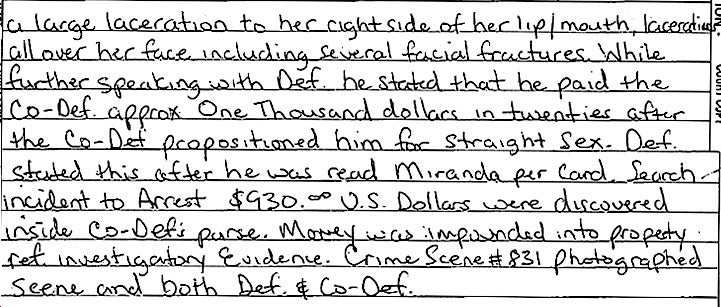 a large laceration to her right side of her lip/mouth, lacerations
all over her face including several facial fractures. While
further speaking with Def. he stated that he paid the
Co-Def. approx One Thousand dollars in twenties after
the Co-Def propositioned him for straight sex. Def.
stated this after he was read Miranda per Card. Search
incident to Arrest $930.00 U.S. Dollars were discovered
inside Co-Def's purse. Money was impounded into property
ref. investigatory Evidence. Crime Scene #831 photographed
scene and both Def. & Co-Def.